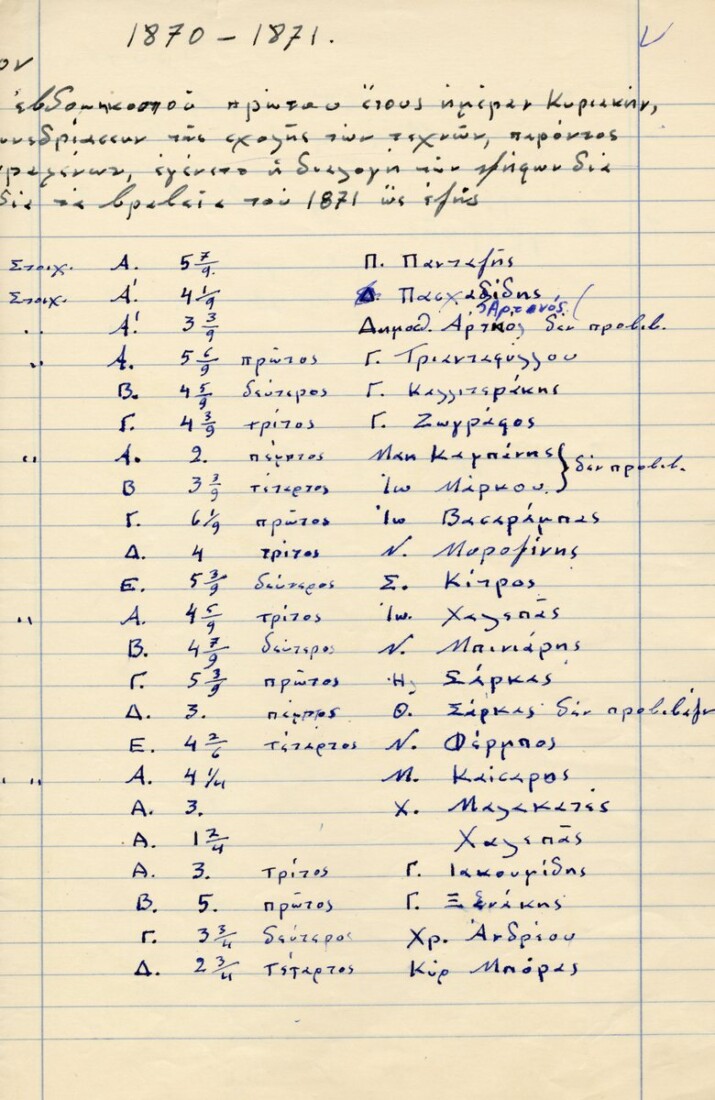 1870 – 1871.
ον
ἑβδομηκοστοῦ πρώτου ἔτους ἡμέραν Κυριακήν,
συνεδριάσεων τῆς σχολῆς τῶν τεχνῶν, παρόντος
ἐγένετο ἡ διαλογὴ τῶν ψήφων διὰ
διὰ τὰ βραβεῖα τοῦ 1871 ὡς ἑξῆς
Στοιχ. Α. 5 7/9. Π. Πανταζῆς
Στοιχ. Α' 4 1/9 Δ. Πασχαδίδης
" Α' 3 3/9 Δημοσ. Ἀρτινός Ἀρτανός. δὲν προβιβ.
" Α. 5 6/9 πρῶτος Γ. Τριανταφύλλου
Β. 4 5/9 δεύτερος Γ. Καλλιτεράκης
Γ. 4 3/9 τρίτος Γ. Ζωγράφος
" Α. 2. πέμπτος Μαν Καμπάνης } δὲν προβιβ.
Β 3 3/9 τέταρτος Ἰω Μάρκου.
Γ. 6 1/9 πρῶτος Ἰω Βασαράμπας
Δ. 4 τρίτος Ν. Μοροζίνης
Ε. 5 3/9 δεύτερος Σ. Κίτρος
" Α. 4 5/9 τρίτος Ἰω. Χαλεπᾶς
Β. 4 7/9 δεύτερος Ν. Μπινιάρης
Γ. 5 3/9 πρῶτος Ἠλ Σάρκας
Δ. 3. πέμπτος Θ. Σάρκας δὲν προβιβάζ
Ε. 4 2/6 τέταρτος Ν. Φέρμπος
" " Α. 4 1/4 Μ. Καίσαρης
Α. 3. Χ. Μαλακατές
Α. 1 2/4 Χαλεπᾶς
Α. 3. τρίτος Γ. Ιακουμίδης
Β. 5. πρῶτος Γ. Ξενάκης
Γ. 3 3/4 δεύτερος Χρ. Ἀνδρέου
Δ. 2 3/4 τέταρτος Κύρ Μπόρας